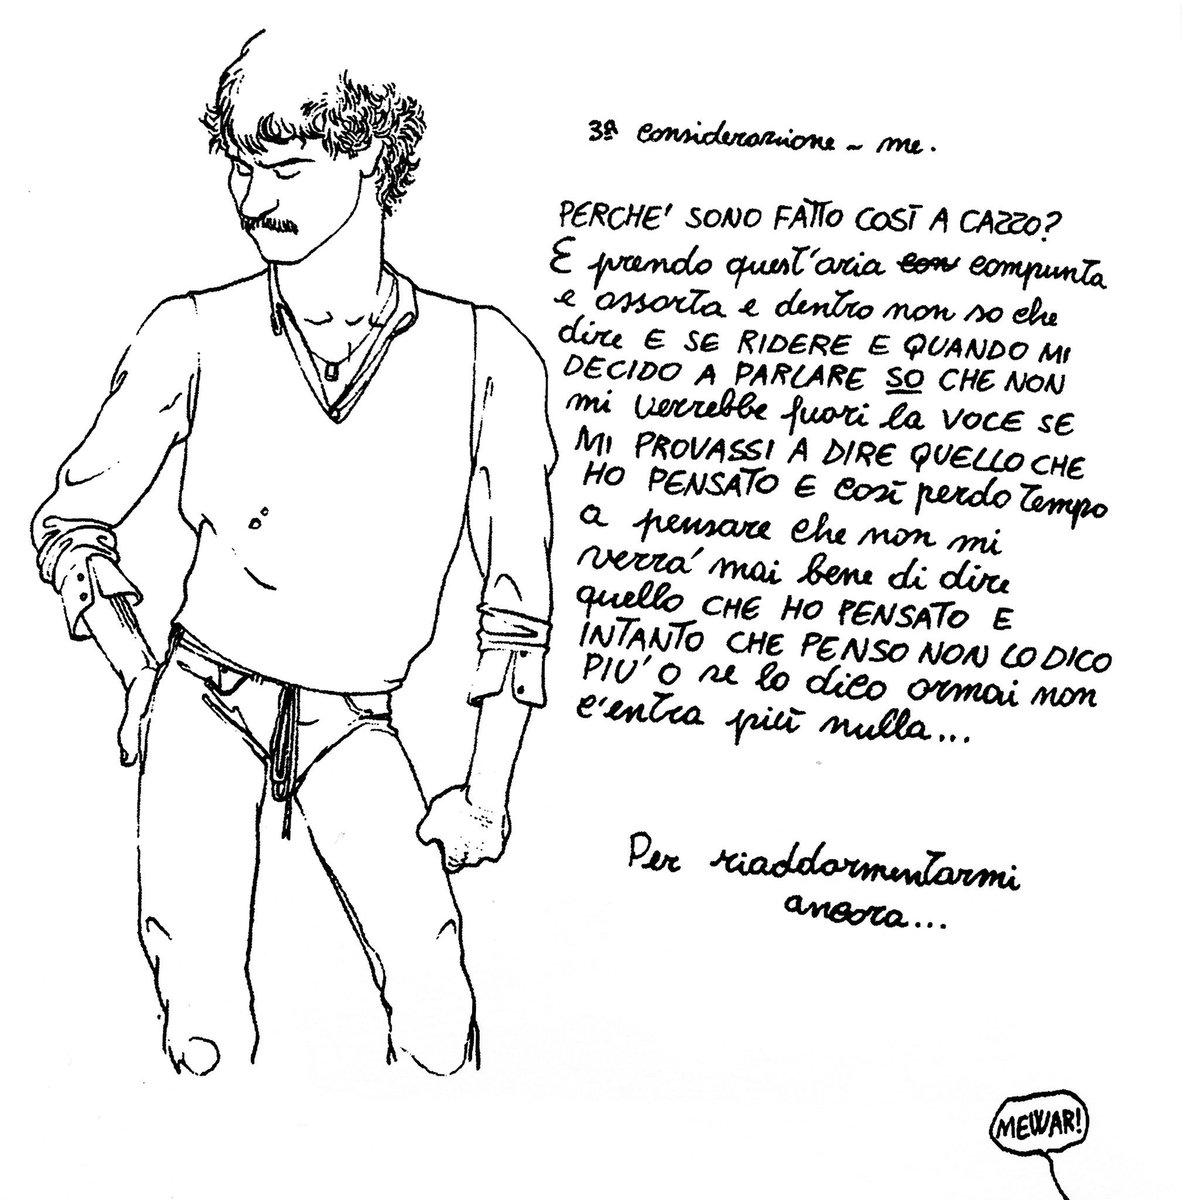 3ª considerazione - me.
PERCHE' SONO FATTO COSÌ A CAZZO?
E prendo quest'aria con compunta
e assorta e dentro non so che
dire E SE RIDERE E QUANDO MI
DECIDO A PARLARE SO CHE NON
mi verrebbe fuori la VOCE SE
MI PROVASSI A DIRE QUELLO CHE
HO PENSATO E così perdo tempo
a pensare che non mi
verrà mai bene di dire
quello CHE HO PENSATO E
INTANTO CHE PENSO NON LO DICO
PIU' O se lo dico ormai non
c'entra più nulla...
Per riaddormentarmi
ancora...
MEWAR!